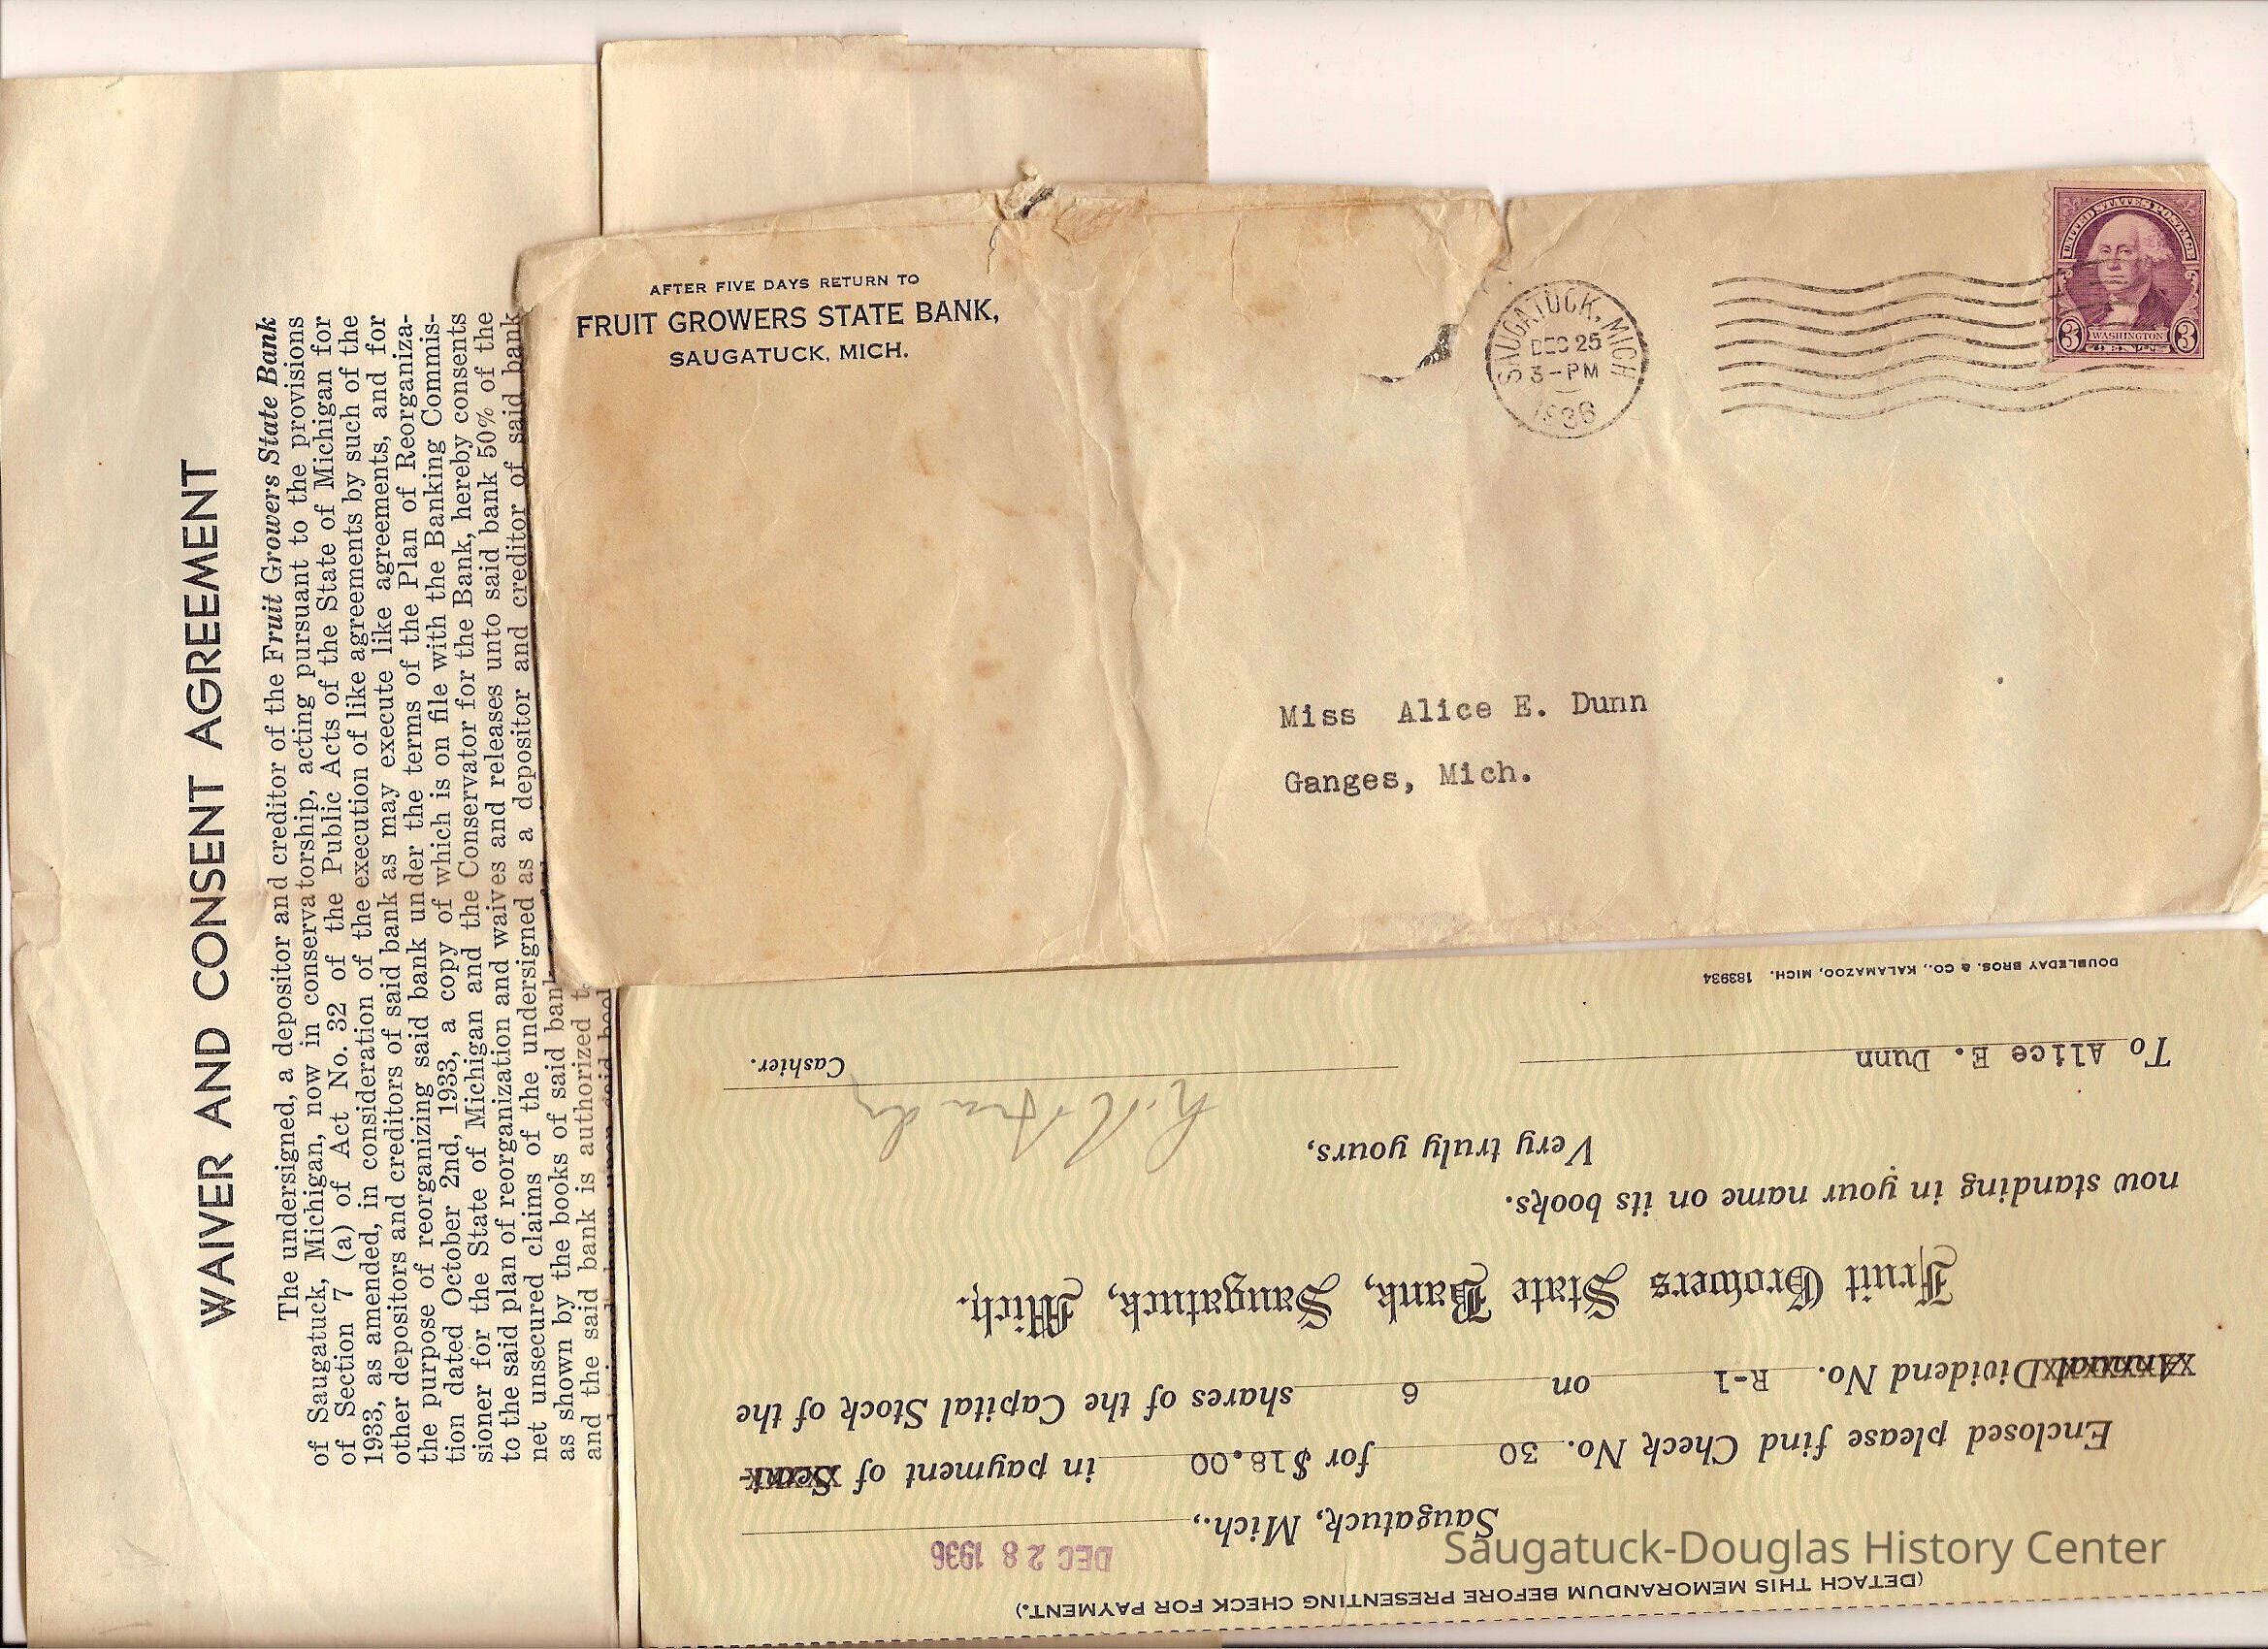 WAIVER AND CONSENT AGREEMENT
The undersigned, a depositor and creditor of the Fruit Growers State Bank
of Saugatuck, Michigan, now in conservatorship, acting pursuant to the provisions
of Section 7 (a) of Act No. 32 of the Public Acts of the State of Michigan for
1933, as amended, in consideration of the execution of like agreements by such of the
other depositors and creditors of said bank as may execute like agreements, and for
the purpose of reorganizing said bank under the terms of the Plan of Reorganiza-
tion dated October 2nd, 1933, a copy of which is on file with the Banking Commis-
sioner for the State of Michigan and the Conservator for the Bank, hereby consents
to the said plan of reorganization and waives and releases unto said bank 50% of the
net unsecured claims of the undersigned as a depositor and creditor of said bank
as shown by the books of said bank
and the said bank is authorized
AFTER FIVE DAYS RETURN TO
FRUIT GROWERS STATE BANK,
SAUGATUCK, MICH.
SAUGATUCK, MICH
DEC 25
3-PM
UNITED STATES POSTAGE
3 WASHINGTON 3
Miss Alice E. Dunn
Ganges, Mich.
(DETACH THIS MEMORANDUM BEFORE PRESENTING CHECK FOR PAYMENT.)
Saugatuck, Mich., DEC 28 1936
Enclosed please find Check No. 30 for $18.00 in payment of Semi-
Annual Dividend No. R-1 on 6 shares of the Capital Stock of the
Fruit Growers State Bank, Saugatuck, Mich.
now standing in your name on its books.
Very truly yours,
To Alice E. Dunn
Cashier.
DOUBLEDAY BROS. & CO., KALAMAZOO, MICH. 183934
Saugatuck-Douglas History Center